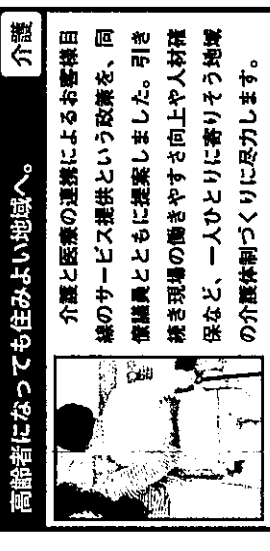 高齢者になっても住みよい地域へ。
介護
介護と医療の連携によるお客様目
線のサービス提供という政策を、同
僚議員とともに提案しました。引き
続き現場の働きやすさ向上や人材確
保など、一人ひとりに寄りそう地域
の介護体制づくりに尽力します。